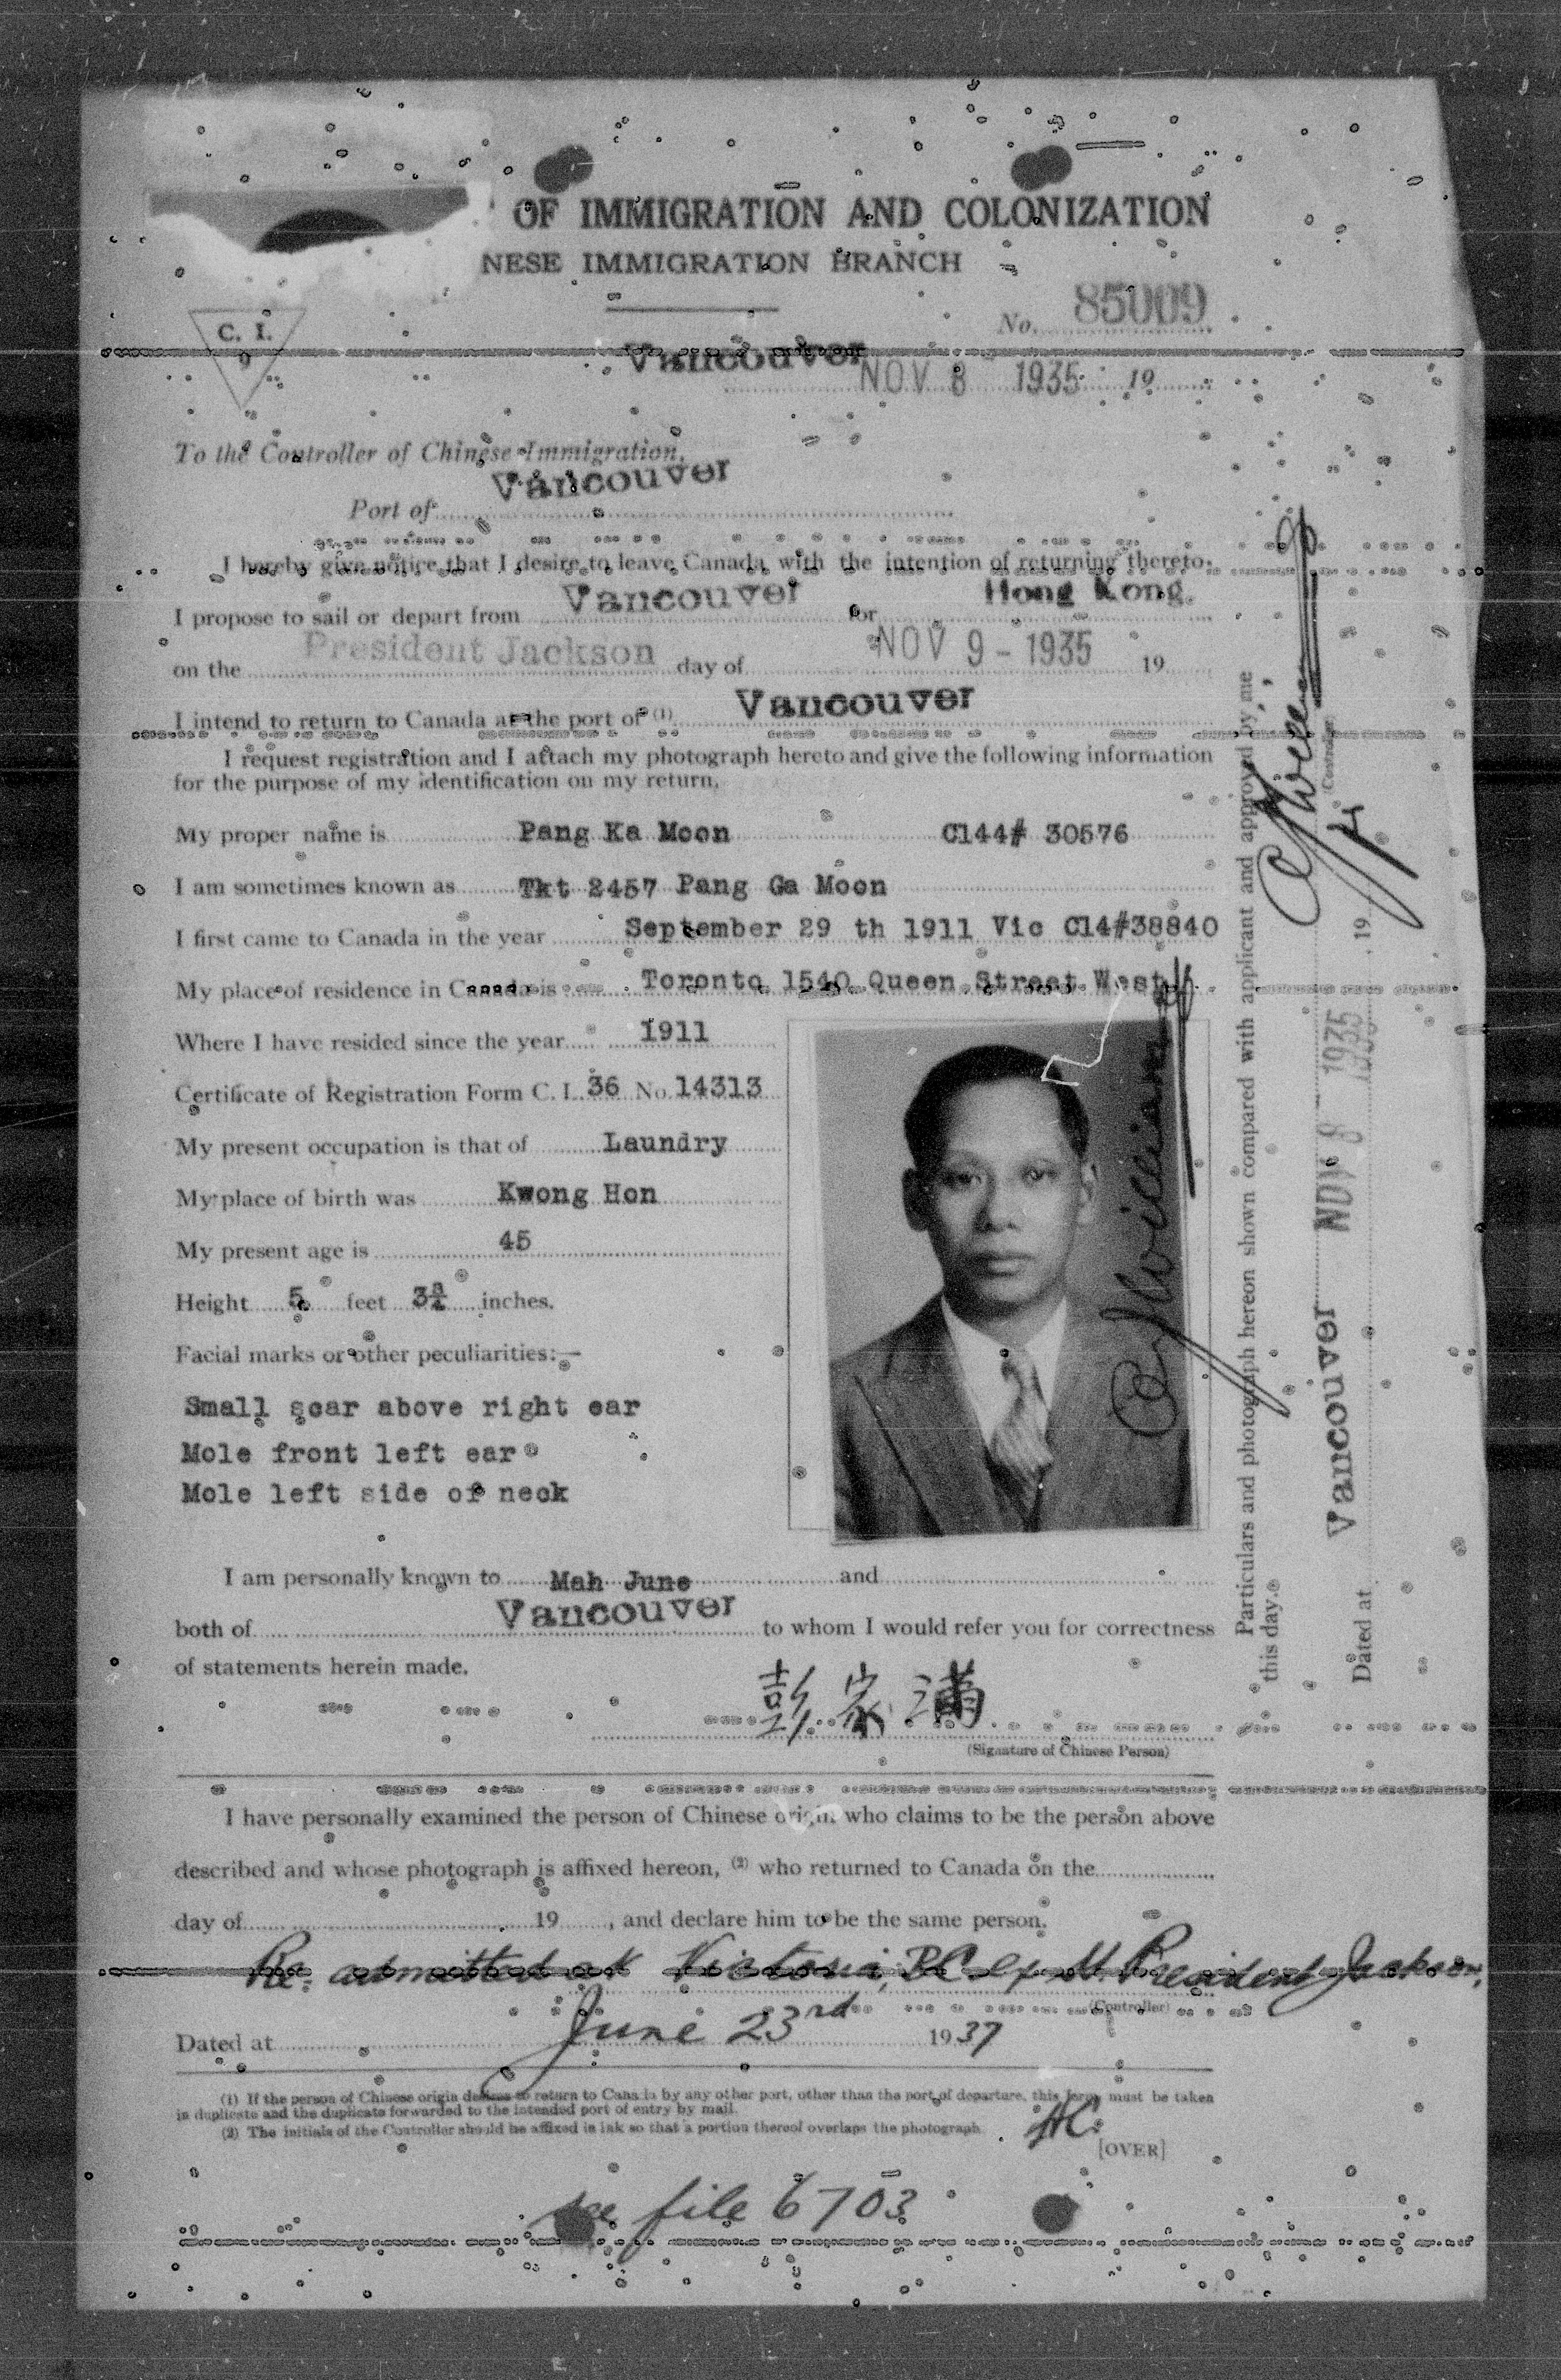 OF IMMIGRATION AND COLONIZATION
NESE IMMIGRATION BRANCH
No. 85009
C. I.
9
Vancouver NOV 8 1935 19
To the Controller of Chinese Immigration,
Vancouver
Port of
I hereby give notice that I desire to leave Canada with the intention of returning thereto.
I propose to sail or depart from Vancouver for Hong Kong.
on the President Jackson day of NOV 9 - 1935 19
I intend to return to Canada at the port of (1) Vancouver
I request registration and I attach my photograph hereto and give the following information
for the purpose of my identification on my return.
My proper name is Pang Ka Moon C144# 30576
I am sometimes known as Tkt 2457 Pang Ga Moon
I first came to Canada in the year September 29 th 1911 Vic C14#38840
My place of residence in Canada is Toronto 1540 Queen Street West
Where I have resided since the year 1911
Certificate of Registration Form C. I. 36 No. 14313
My present occupation is that of Laundry
My place of birth was Kwong Hon
My present age is 45
Height 5 feet 3¾ inches.
Facial marks or other peculiarities:—
Small scar above right ear
Mole front left ear
Mole left side of neck
I am personally known to Mah June and
both of Vancouver to whom I would refer you for correctness
of statements herein made.
彭家滿
(Signature of Chinese Person)
I have personally examined the person of Chinese origin who claims to be the person above
described and whose photograph is affixed hereon, (2) who returned to Canada on the
day of 19 , and declare him to be the same person.
Re-admitted at Victoria, B.C. ex President Jackson,
(Controller)
June 23rd
Dated at 1937
(1) If the person of Chinese origin desires to return to Canada by any other port, other than the port of departure, this form must be taken
in duplicate and the duplicate forwarded to the intended port of entry by mail.
(2) The initials of the Controller should be affixed in ink so that a portion thereof overlaps the photograph.
[OVER]
see file 6703
Particulars and photograph hereon shown compared with applicant and approved by me
this day.
Controller
Vancouver NOV 8 1935
Dated at 19